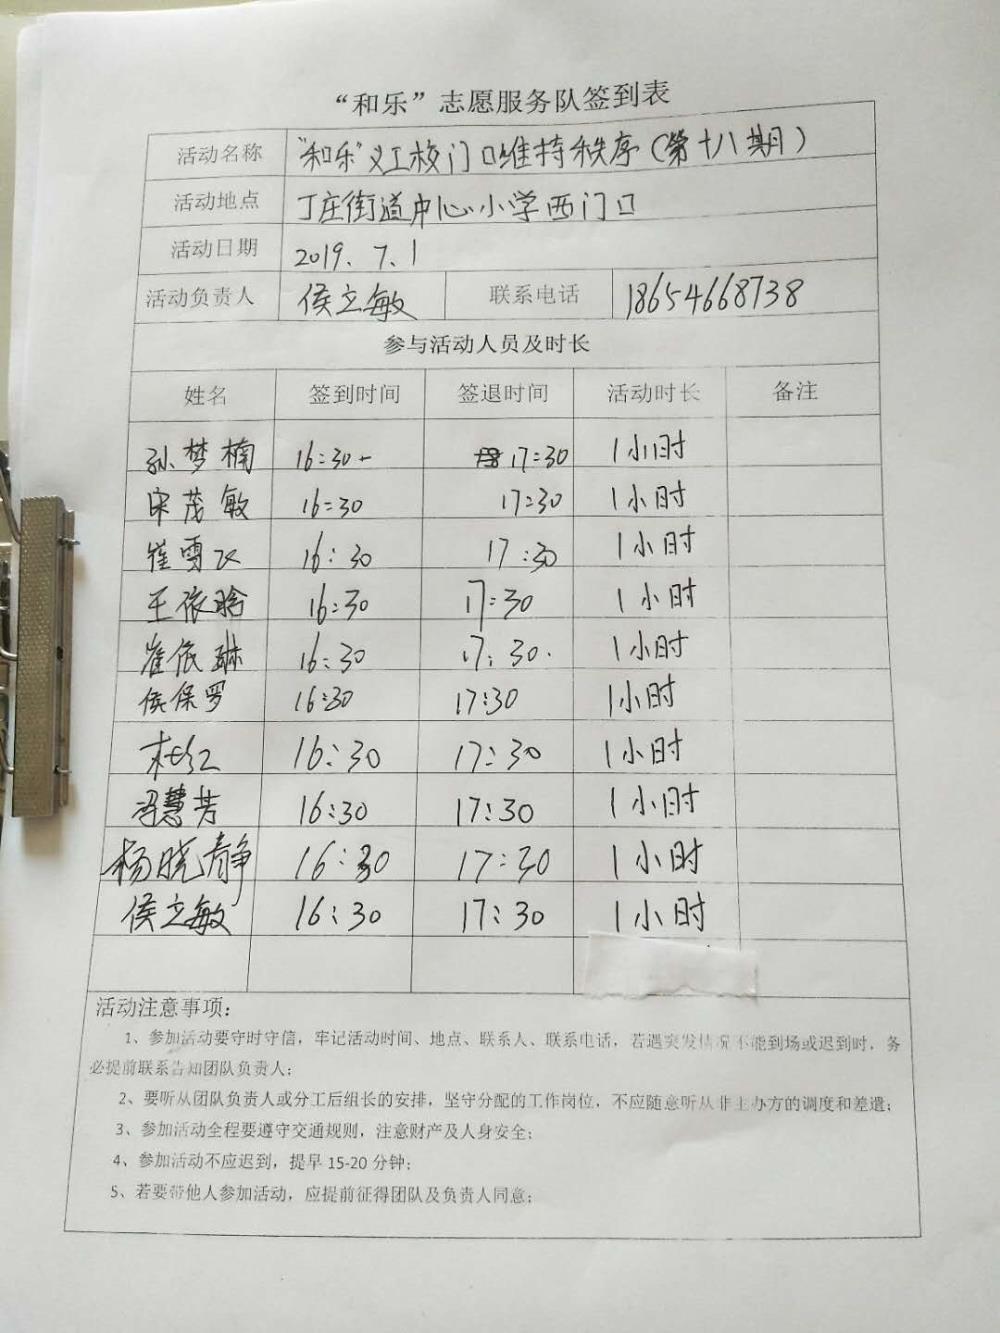 “和乐”志愿服务队签到表
活动名称 “和乐”义工校门口维持秩序（第十八期）
活动地点 丁庄街道中心小学西门口
活动日期 2019.7.1
活动负责人 侯立敏 联系电话 18654668738
参与活动人员及时长
姓名 签到时间 签退时间 活动时长 备注
孙梦楠 16:30 17:30 1小时
宋茂敏 16:30 17:30 1小时
崔雪 16:30 17:30 1小时
王依晗 16:30 17:30 1小时
崔依琳 16:30 17:30. 1小时
侯保罗 16:30 17:30 1小时
杜红 16:30 17:30 1小时
冯慧芳 16:30 17:30 1小时
杨晓静 16:30 17:30 1小时
侯立敏 16:30 17:30 1小时
活动注意事项：
1、参加活动要守时守信，牢记活动时间、地点、联系人、联系电话，若遇突发情况不能到场或迟到时，务
必提前联系告知团队负责人；
2、要听从团队负责人或分工后组长的安排，坚守分配的工作岗位，不应随意听从非主办方的调度和差遣；
3、参加活动全程要遵守交通规则，注意财产及人身安全；
4、参加活动不应迟到，提早 15-20 分钟；
5、若要带他人参加活动，应提前征得团队及负责人同意；